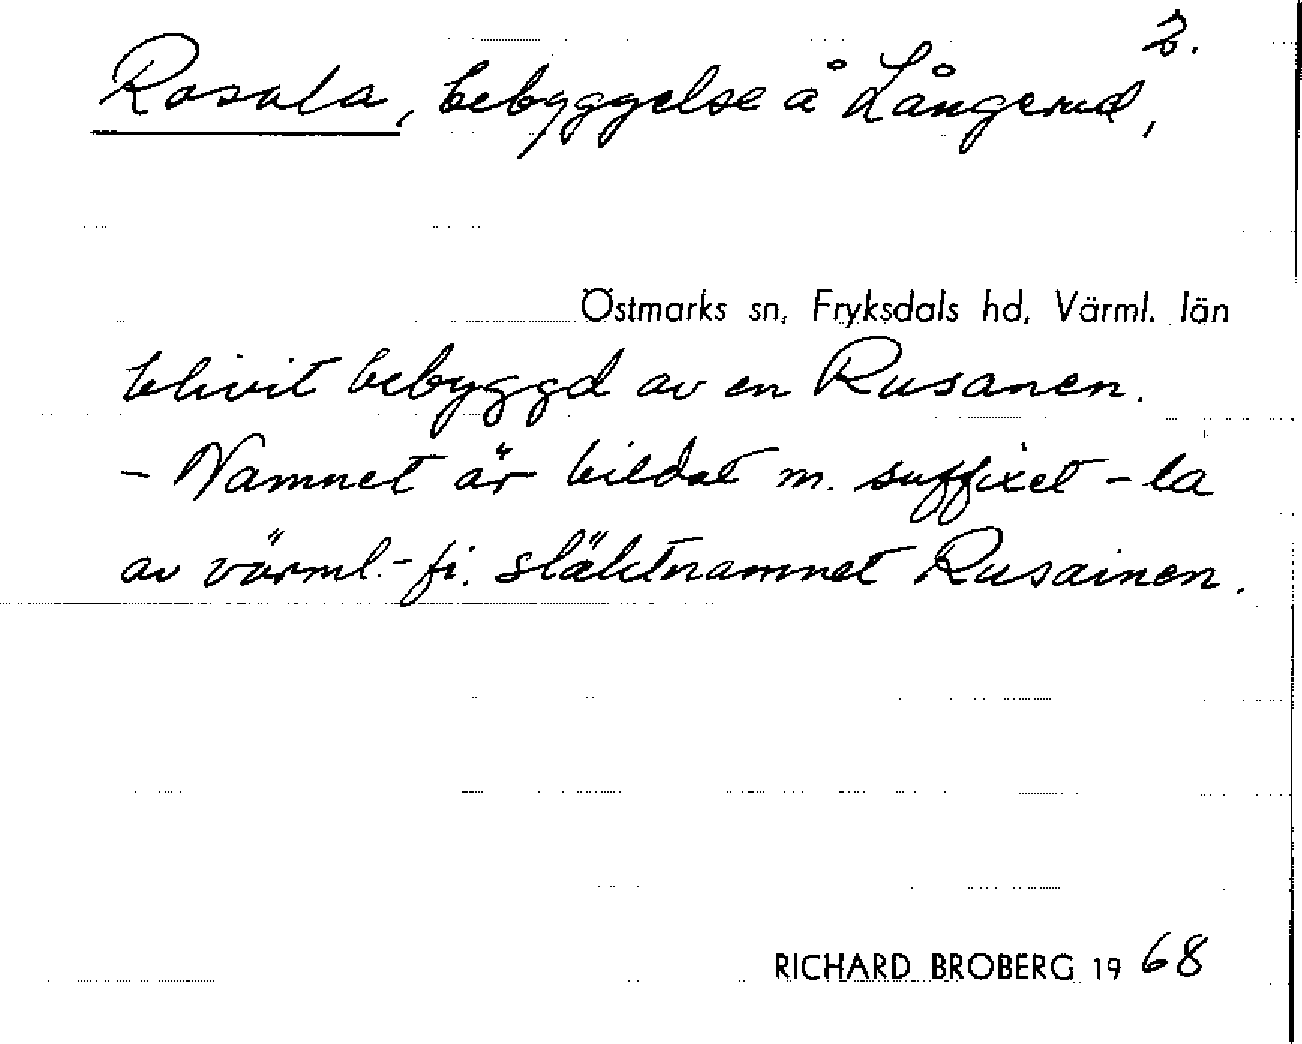 2.
Rosala, bebyggelse å Långerud,
Östmarks sn, Fryksdals hd, Värml. län
blivit bebyggd av en Rusanen.
- Namnet är bildat m. suffixet -la
av värml.-fi. släktnamnet Rusainen.
RICHARD BROBERG 1968